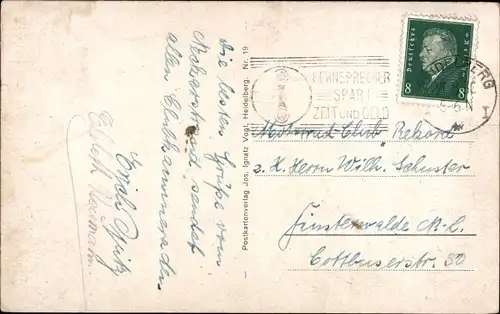 Die besten Grüße vom
Neckarstrand sendet
allen Clubkameraden
Erich Opitz
Postkartenverlag Jos. Ignatz Vogt, Heidelberg. Nr. 19
FERNSPRECHER
SPART
ZEIT UND GELD
Deutsches Reich
8 8
Motorrad Club Rekord
z. H. Herrn Wilh. Schuster
Finsterwalde N.-L.
Cottbuserstr. 50